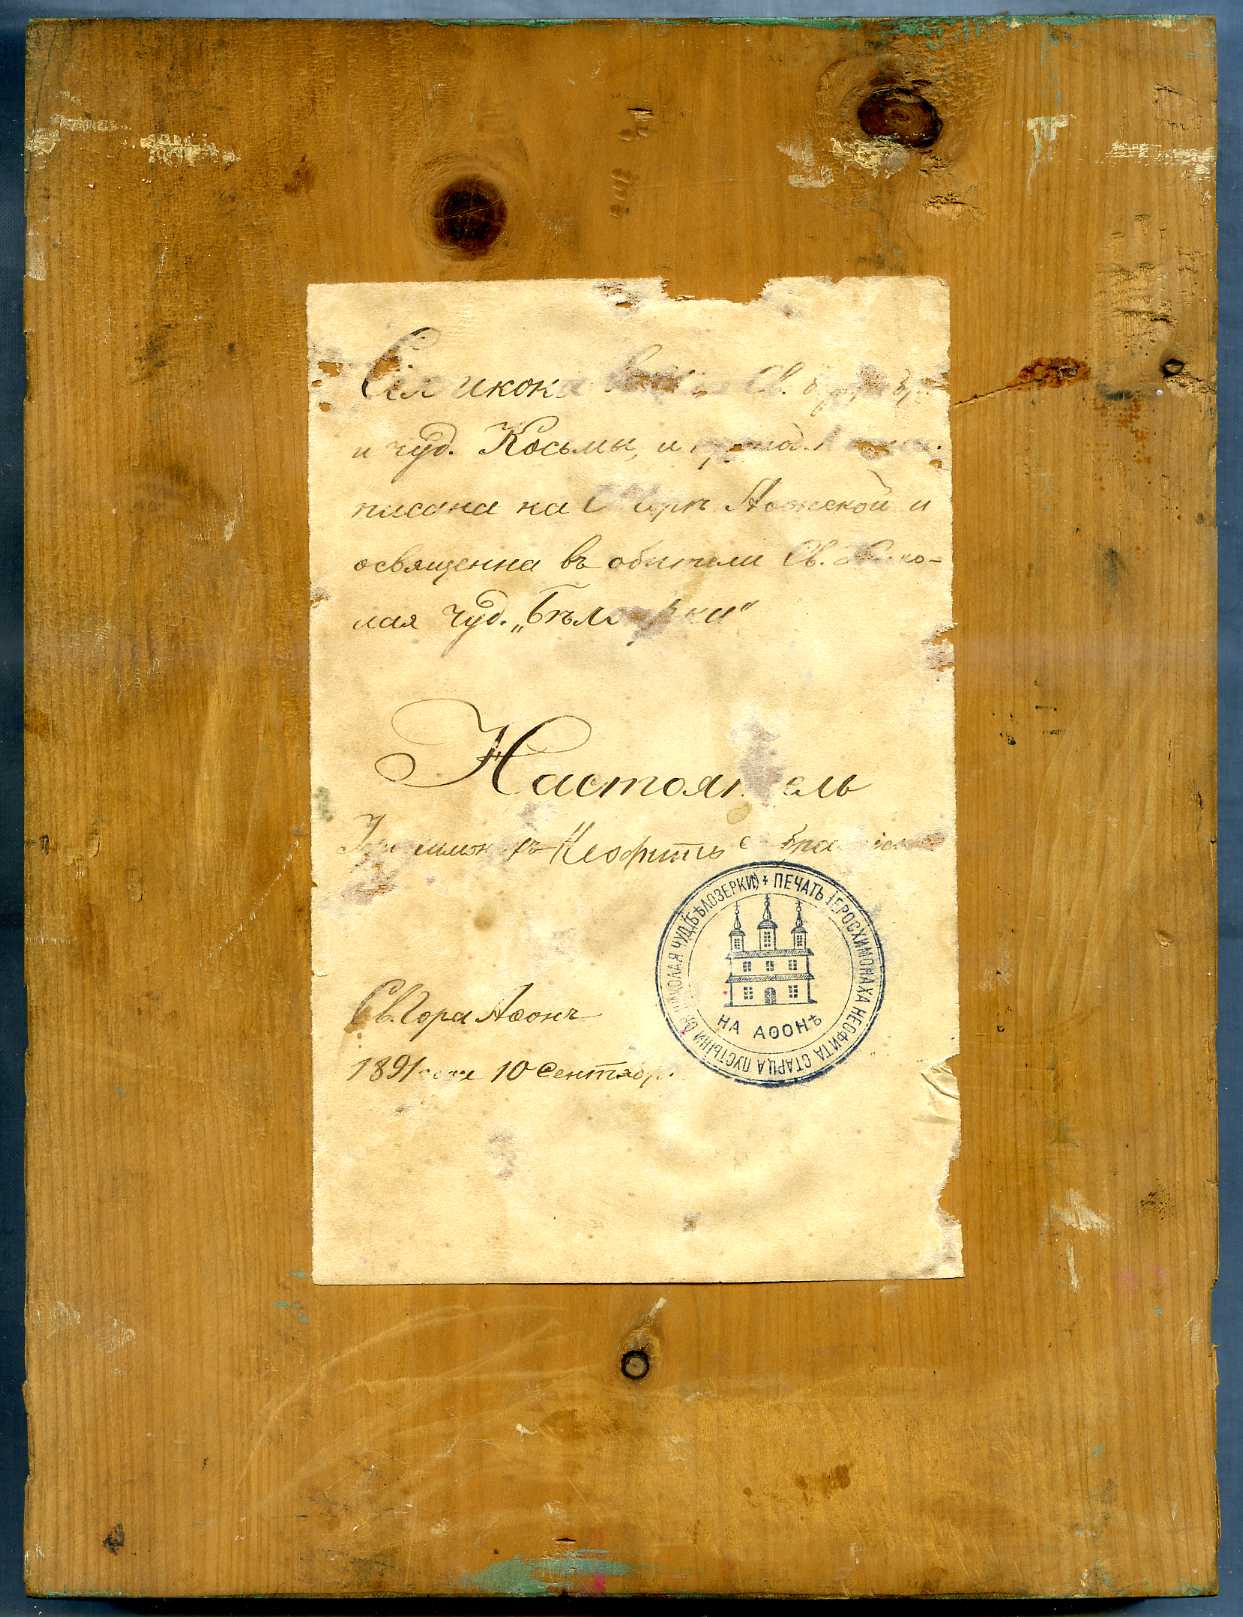 Сія икона Св.
и чуд. Косьмы, и
писана на Св. Горѣ Аѳонской и
освященна въ обители Св. Нико-
лая чуд. „Бѣлозерки“
Настоятель
Неофитъ с
Св. Гора Аѳонъ
1891 года 10 Сентябр.
ПЕЧАТЬ ІЕРОСХИМОНАХА НЕОФИТА СТАРЦА ПУСТЫНИ СВ. НИКОЛАЯ ЧУД.(БѢЛОЗЕРКИ)
НА АѲОНѢ